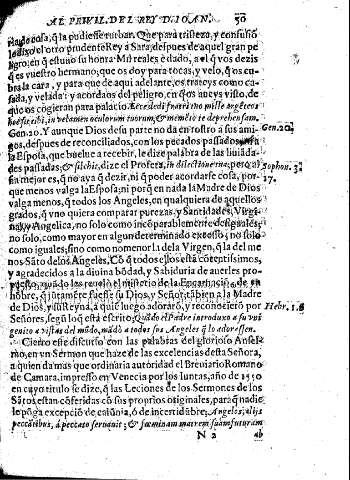 AL PRIVIL. DEL REY D. IOAN. 50
cosa, q̃ la pudiesse turbar. Que para tristeza, y confusiõ
le dixo el otro prudente Rey a Sara, despues de aquel gran pe
ligro, en q̃ estuuo su honra. Mil reales è dado, a el q̃ vos dezis
q̃ es vuestro hermano; que os doy para tocas, y velo, q̃ os cu-
bra la cara, y para que de aqui adelante, os trateys como ca-
sada, y velada: y acordaos del peligro, en q̃ os aueys visto, de
que os cogieran para palacio. Ecce dedi fratri tuo mille argeteos
hoc sit tibi, in velamen oculorum tuorum, & memẽto te deprehensam.
Gen. 20. Y aunque Dios de su parte no da en rostro a sus ami-
Gen. 20.
gos, despues de reconciliados, con los pecados passados,
la Esposa, que buelue a recebir, le dize palabra de las liuiãda-
des passadas, & silebit, dize el Profeta, in dilectione tua; pero al
Sophon. 3.
17.
fin mejor es, q̃ no aya q̃ dezir, ni q̃ poder acordarse cosa, por-
que menos valga la Esposa; ni porq̃ en nada la Madre de Dios
valga menos, q̃ todos los Angeles, en qualquiera de aquellos
grados, q̃ vno quiera comparar purezas, y Santidades, Virgi-
nal, y Angelica, no solo como incõparablemente desiguales;
no solo, como mayor en algun determinado excesso; no solo
como iguales; sino como menor la de la Virgen, q̃ la del me
nos Sãto de los Angeles. Cõ q̃ todos ellos està cõtentissimos,
y agradecidos a la diuina bõdad, y Sabiduria de auerles pro-
puesto, quãdo les reuelò el misterio de la Encarnaciõ, de su
hõbre, q̃ jũtamẽte fuesse su Dios, y Señor; tãbien a la Madre
de Dios, y su Reyna, a quiẽ luego adorarõ, y reconocierõ por
Señores, segũ lo q̃ està escrito. Quãdo el Padre introduxo a su vni
Hebr. 1. 6
genito a vistas del mũdo, mãdò a todos sus Angeles q̃ lo adorassen.
Cierro este discurso con las palabras del glorioso Ansel-
mo, en vn Sermon que haze de las excelencias desta Señora,
a quien da mas que ordinaria autoridad el Breuiario Romano
de Camara, impresso en Venecia por los Iuntas, año de 1550
en cuyo titulo se dize, q̃ las Leciones de los Sermones de los
Sãtos, estan cõferidas cõ sus proprios originales, para q̃ nadie
le põga excepciõ de calũnia, ò de incertidũbre; Angelos, alijs
peccãtibus, à peccato seruauit; & fœminam matrem suam futuram
N 2 ab